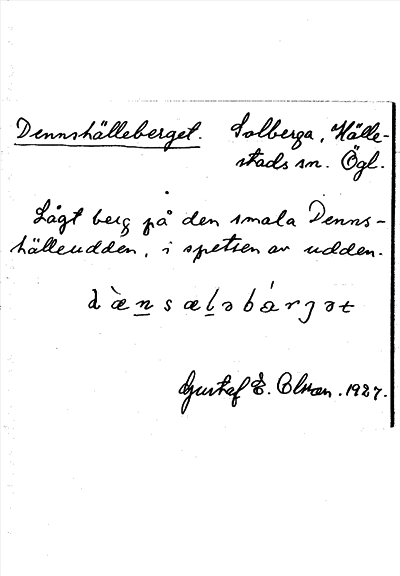 Dennshälleberget. Solberga, Hälle-
stads sn. Ögl.
Lågt berg på den smala Denns-
hälleudden, i spetsen av udden.
dæ̀n̲sæl̲əbárgət
Gustaf E. Olsson. 1927.